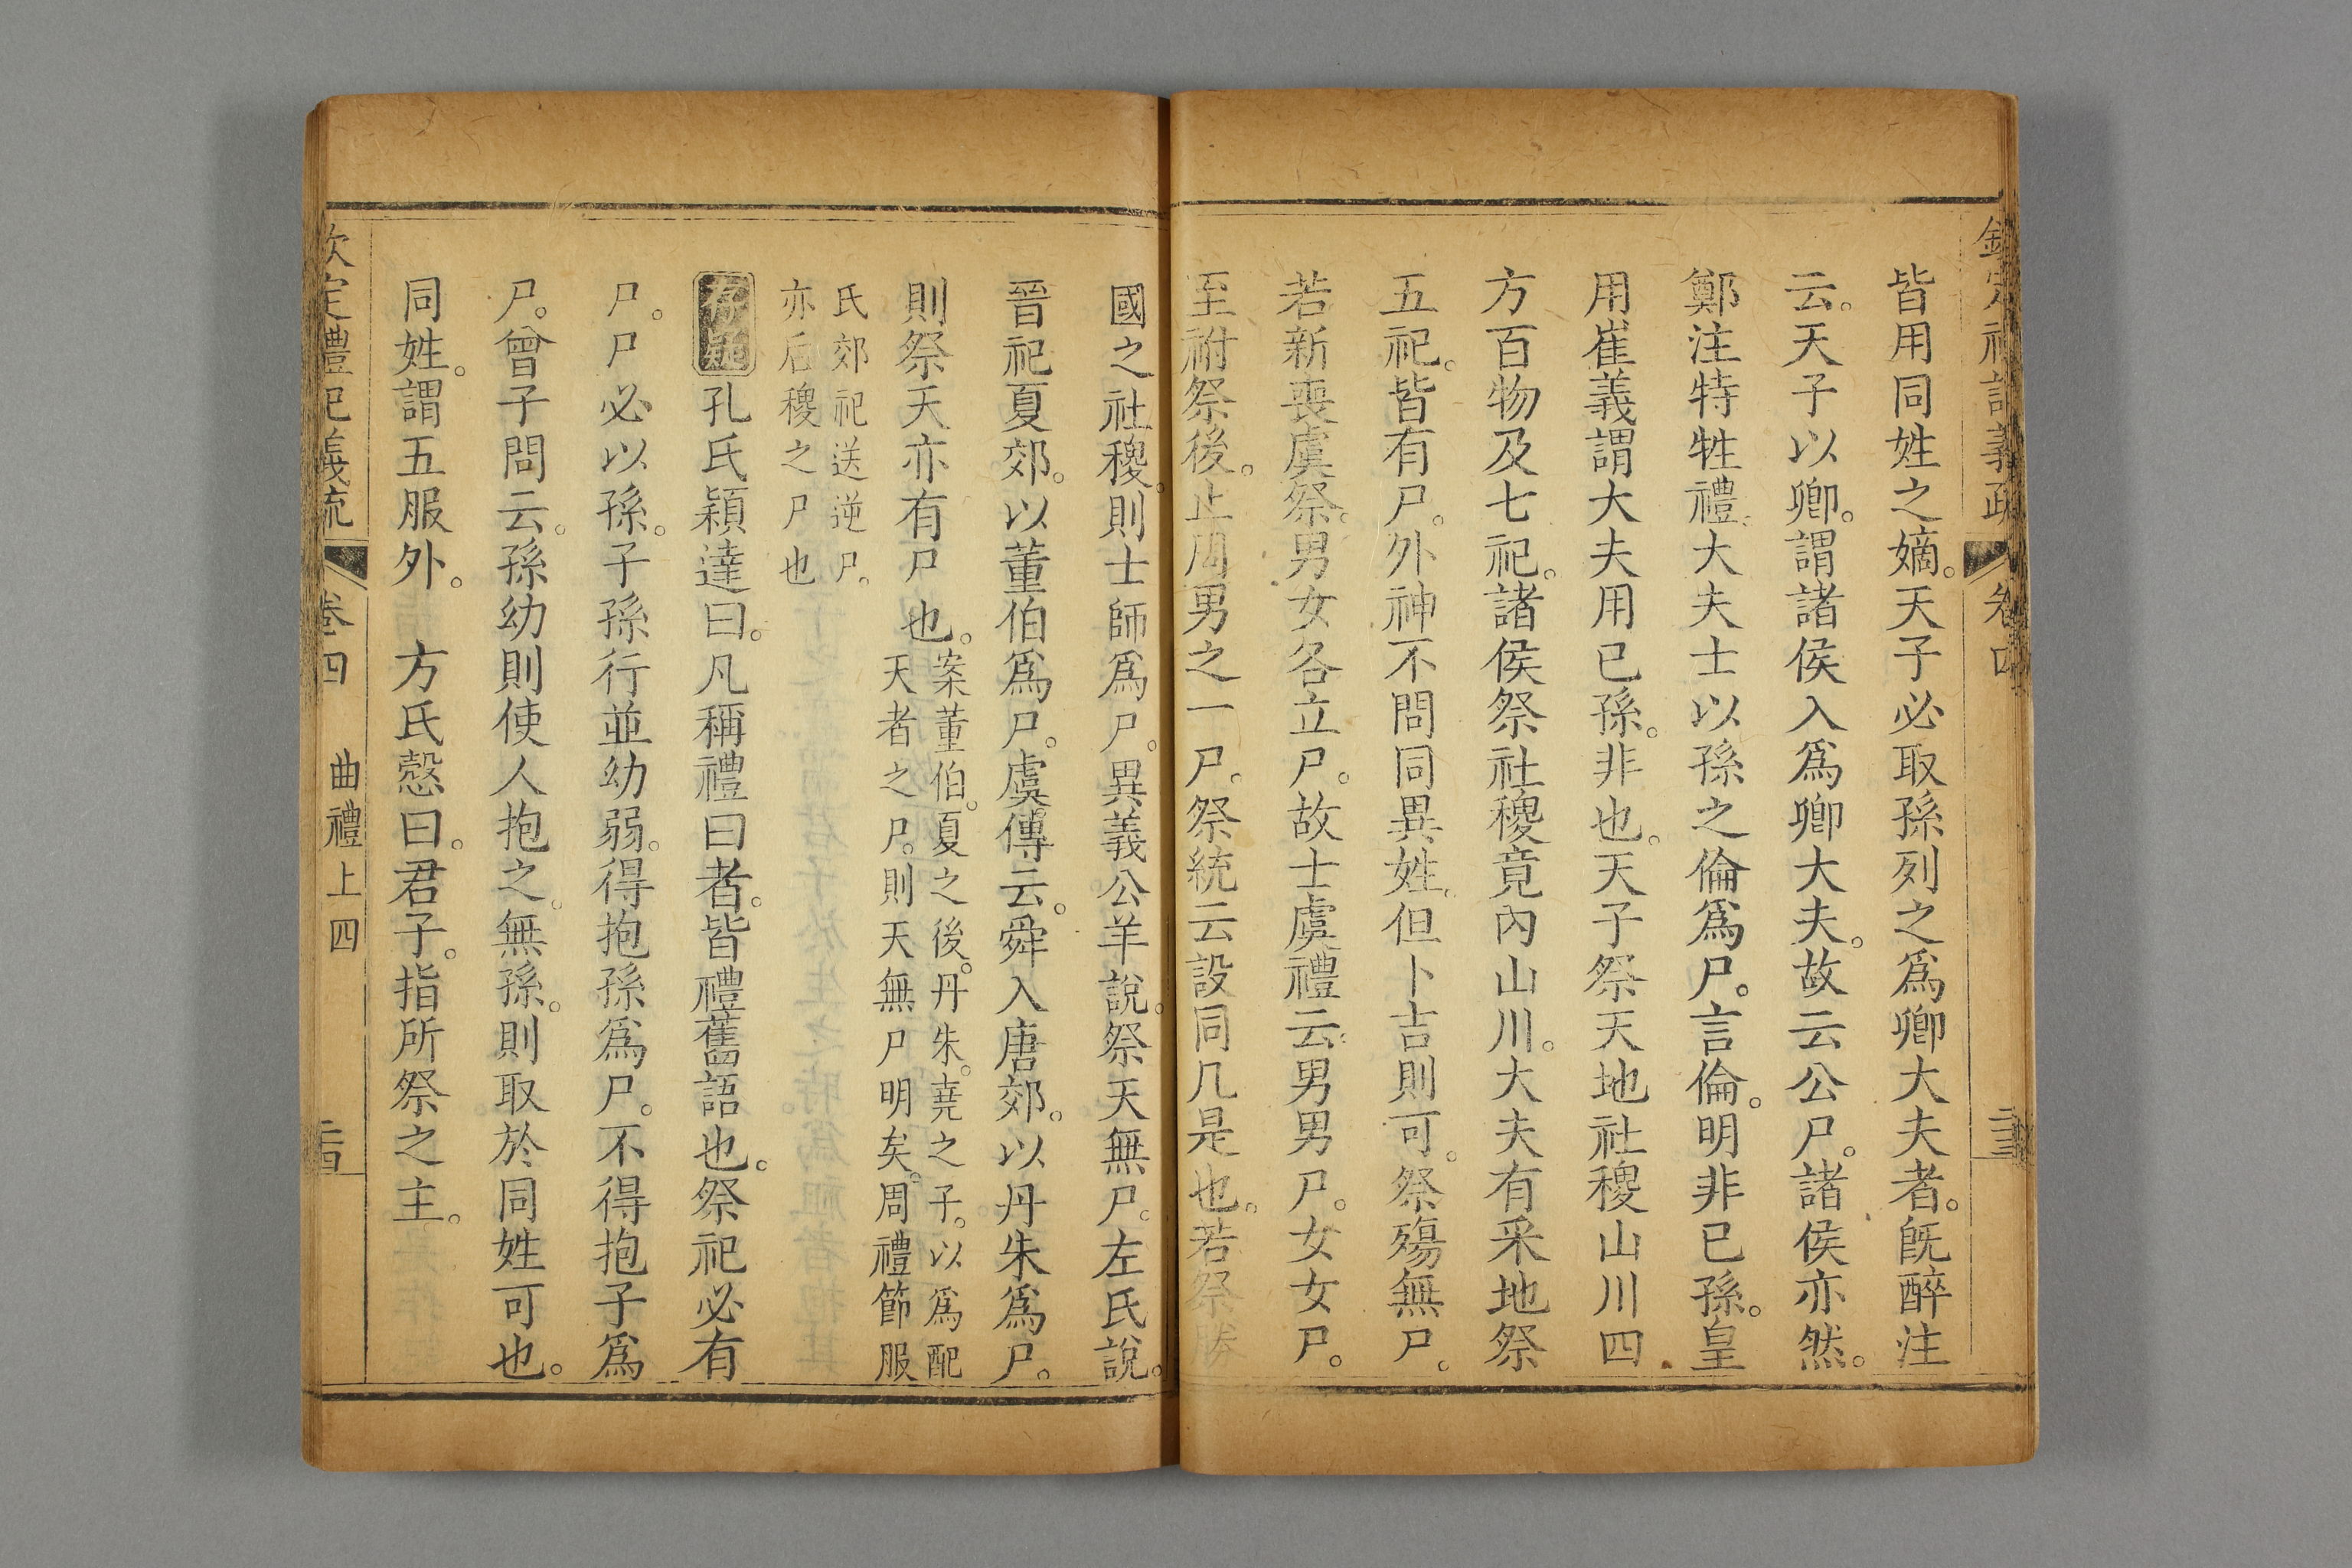 皆用同姓之嫡。天子必取孫列之爲卿大夫者。旣醉注
云。天子以卿。謂諸侯入爲卿大夫。故云公尸。諸侯亦然。
鄭注特牲禮。大夫士以孫之倫爲尸。言倫。明非已孫。皇
用崔義謂大夫用已孫。非也。天子祭天地社稷山川四
方百物及七祀。諸侯祭社稷竟內山川。大夫有采地祭
五祀。皆有尸。外神不問同異姓。但卜吉則可。祭殤無尸。
若新喪虞祭。男女各立尸。故士虞禮云。男男尸。女女尸。
至祔祭後。止用男之一尸。祭統云設同几是也。若祭勝
國之社稷。則士師爲尸。異義公羊說。祭天無尸。左氏說。
晉祀夏郊。以董伯爲尸。虞傳云。舜入唐郊。以丹朱爲尸。
則祭天亦有尸也。
案董伯。夏之後。丹朱。堯之子。以爲配
天者之尸。則天無尸明矣。周禮節服
氏郊祀送逆尸。
亦后稷之尸也
存疑孔氏穎達曰。凡稱禮曰者。皆禮舊語也。祭祀必有
尸。尸必以孫。子孫行並幼弱。得抱孫爲尸。不得抱子爲
尸。曾子問云。孫幼則使人抱之。無孫。則取於同姓可也。
同姓。謂五服外。 方氏慤曰。君子。指所祭之主。
定禮記義疏 卷四 曲禮上四